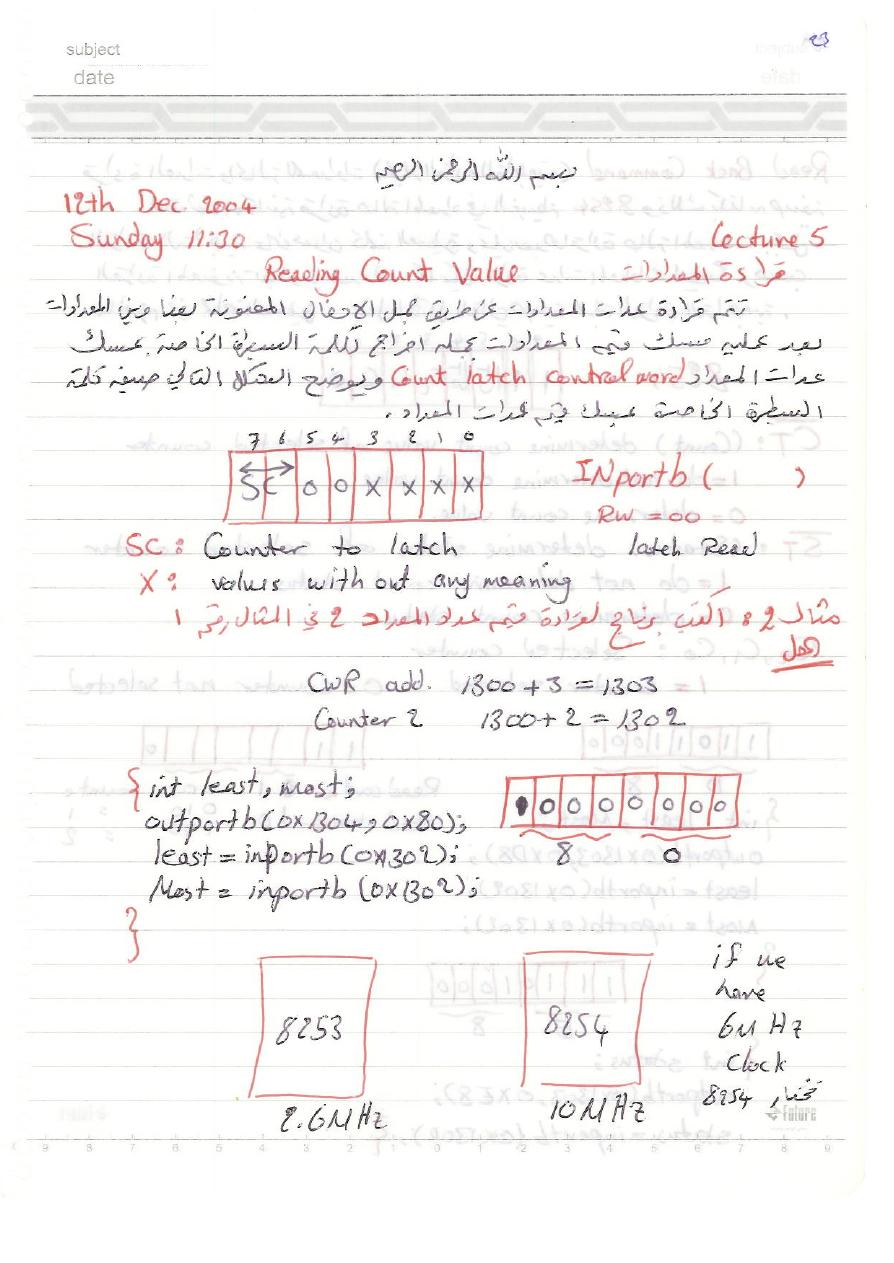 23
subject
date
بسم الله الرحمن الرحيم
12th Dec. 2004
Sunday 11:30 Lecture 5
Reading Count Value قراءة المعدادات
تتم قراءة عدات المعدادات عن طريق جمل الادخال المعنونة لعنا وين المعدادات
بعد عملية مسك قيم المعدادات بجملة اخراج لكلمة السيطرة الخاصة بمسك
عدات المعداد Count latch control word ويوضح الشكل التالي صيغة كلمة
السيطرة الخاصة بمسك قيم عدات المعداد.
7 6 5 4 3 2 1 0
SC 0 0 X X X X INportb( )
RW = 00
SC: Counter to latch latch Read
X: values with out any meaning
مثال 2: اكتب برنامج لقراءة قيم عداد المعداد 2 في المثال رقم 1
الحل
CWR add. 1300 + 3 = 1303
Counter 2 1300 + 2 = 1302
{ int least, most; 1 0 0 0 0 0 0 0
outportb(0x1304, 0x80); 8 0
least = inportb(0x1302);
Most = inportb(0x1302);
}
8253 8254
2.6MHz 10MHz
if we
have
6MHz
Clock
نختار 8254
Future
9 8 7 6 5 4 3 2 1 0 1 2 3 4 5 6 7 8 9